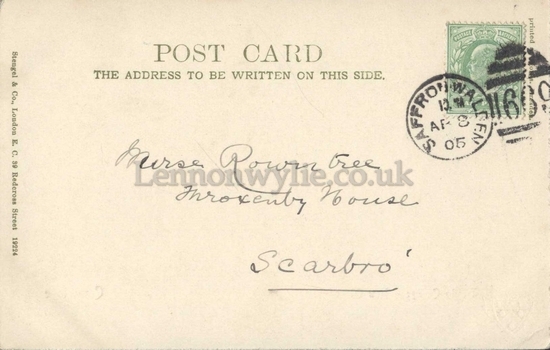 POST CARD
THE ADDRESS TO BE WRITTEN ON THIS SIDE.
Stengel & Co., London E. C. 39 Redcross Street 19224
printed
SAFFRON WALDEN
AP 8
05
669
Nurse Rowntree
Wroxenby House
Scarbro'
Lennonwylie.co.uk